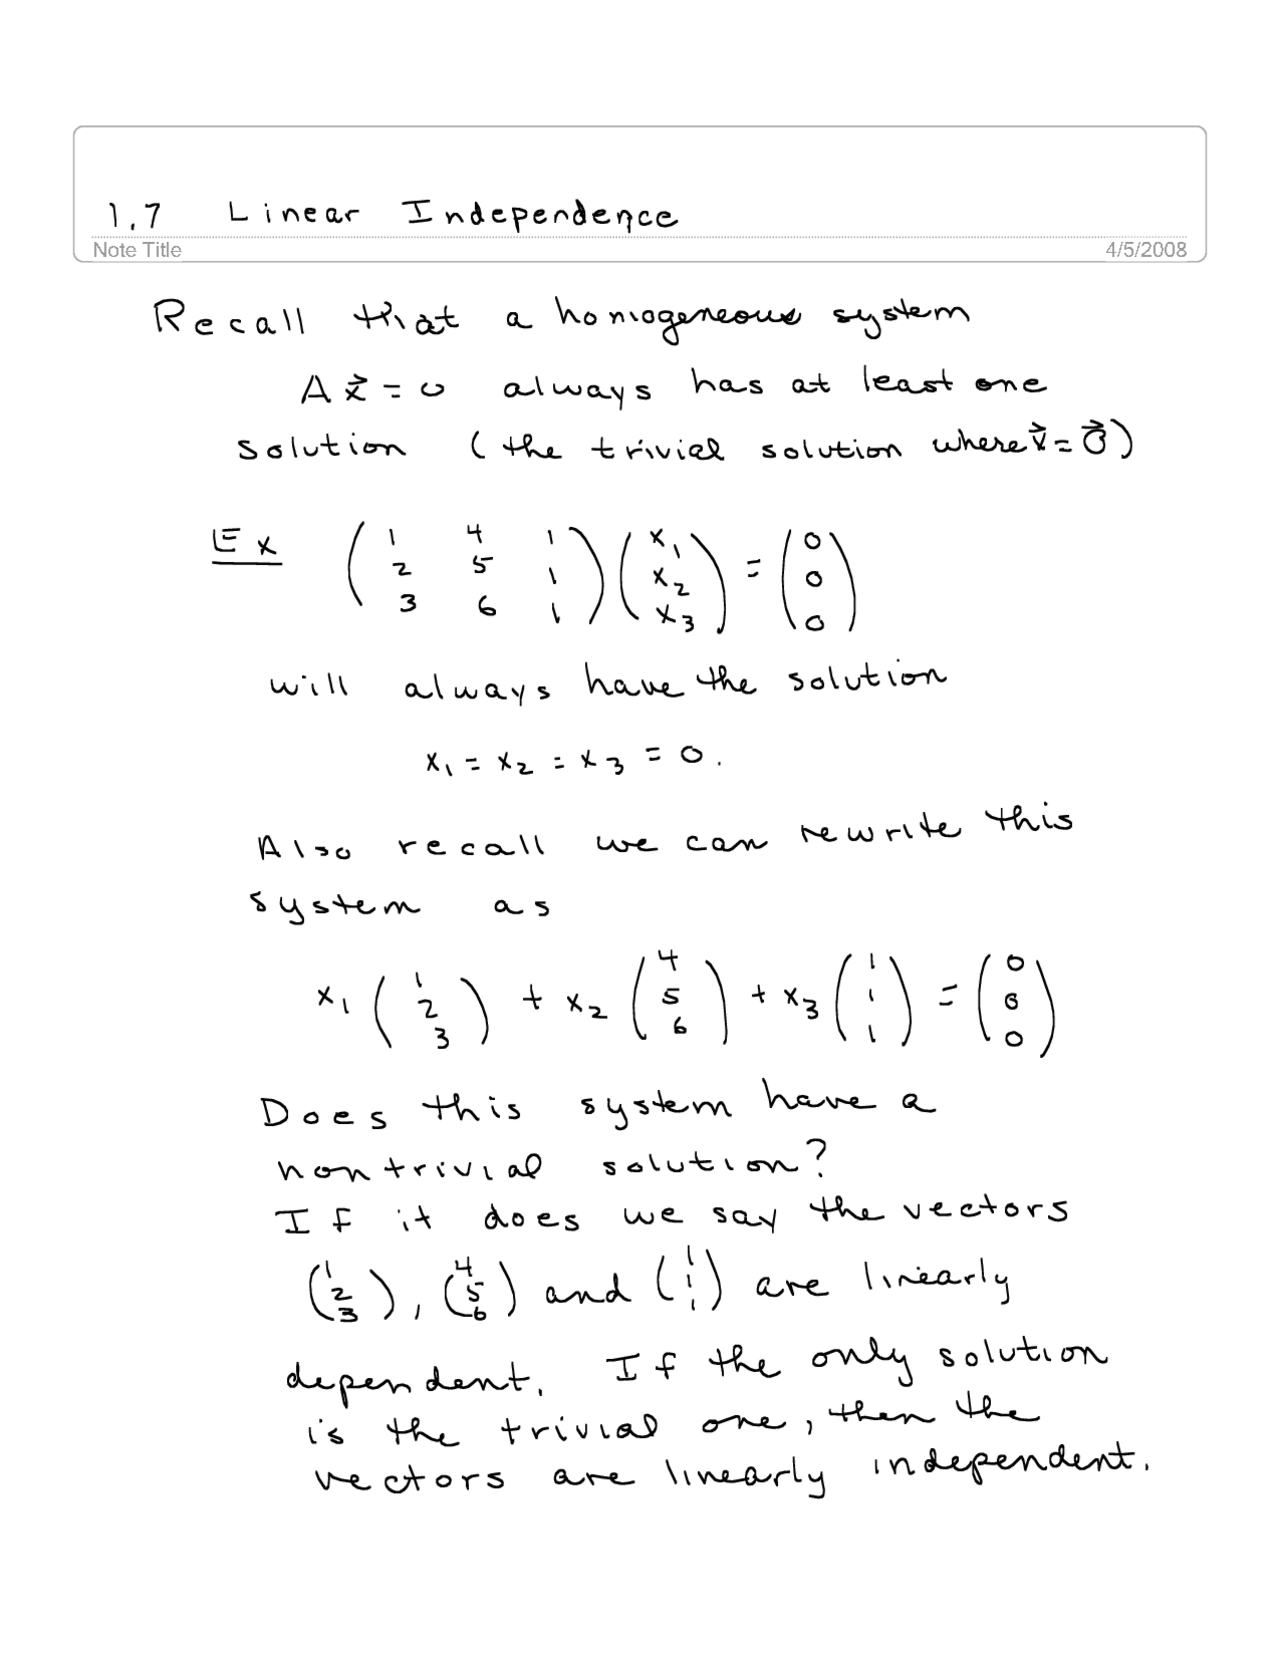 1.7 Linear Independence
Note Title 4/5/2008
Recall that a homogeneous system
A x⃗ = 0 always has at least one
solution (the trivial solution where x⃗ = 0⃗)
Ex ( 1 4 1 ) ( x₁ ) = ( 0 )
( 2 5 1 ) ( x₂ ) ( 0 )
( 3 6 1 ) ( x₃ ) ( 0 )
will always have the solution
x₁ = x₂ = x₃ = 0.
Also recall we can rewrite this
system as
x₁ ( 1 ) + x₂ ( 4 ) + x₃ ( 1 ) = ( 0 )
( 2 ) ( 5 ) ( 1 ) ( 0 )
( 3 ) ( 6 ) ( 1 ) ( 0 )
Does this system have a
nontrivial solution?
If it does we say the vectors
( 1 ), ( 4 ) and ( 1 ) are linearly
( 2 ) ( 5 ) ( 1 )
( 3 ) ( 6 ) ( 1 )
dependent. If the only solution
is the trivial one, then the
vectors are linearly independent.